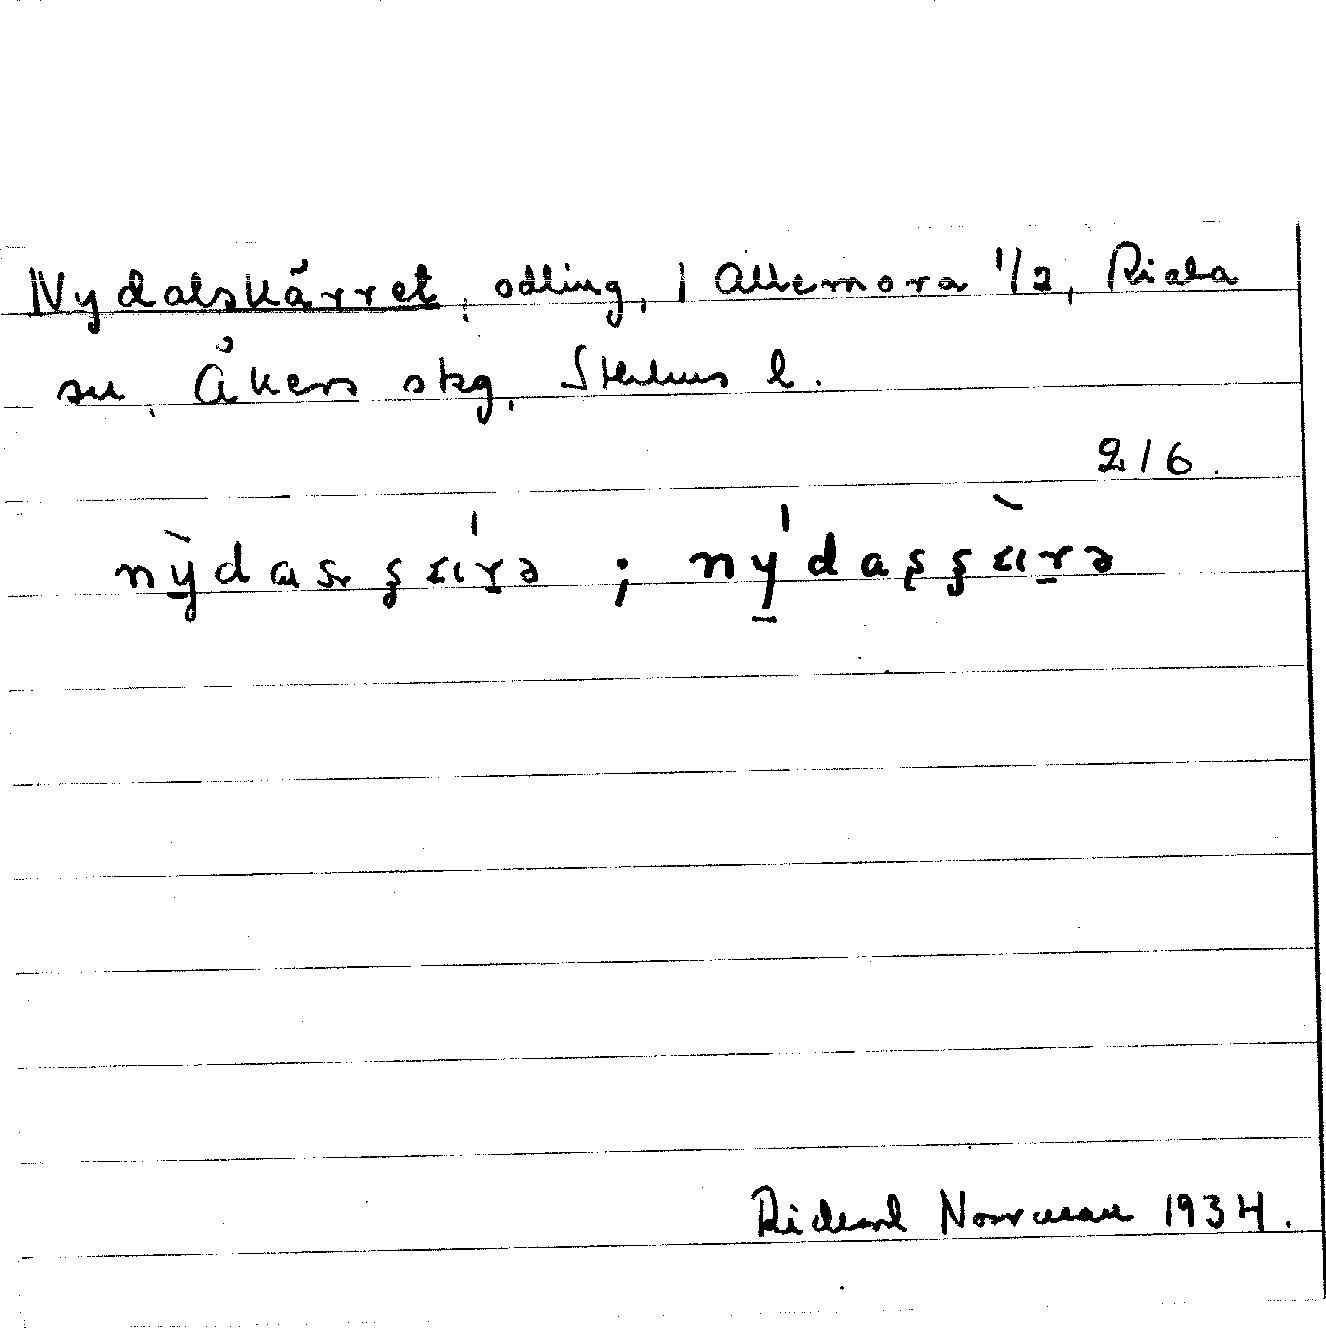 Nydalskärret, odling, 1 Allemora 1/2, Riala
sn, Åkers skg, Sthlms l.
216.
nỳdas ʂɛ́rə ; nýdaʂʂɛ̀rə
Rickard Norrman 1934.